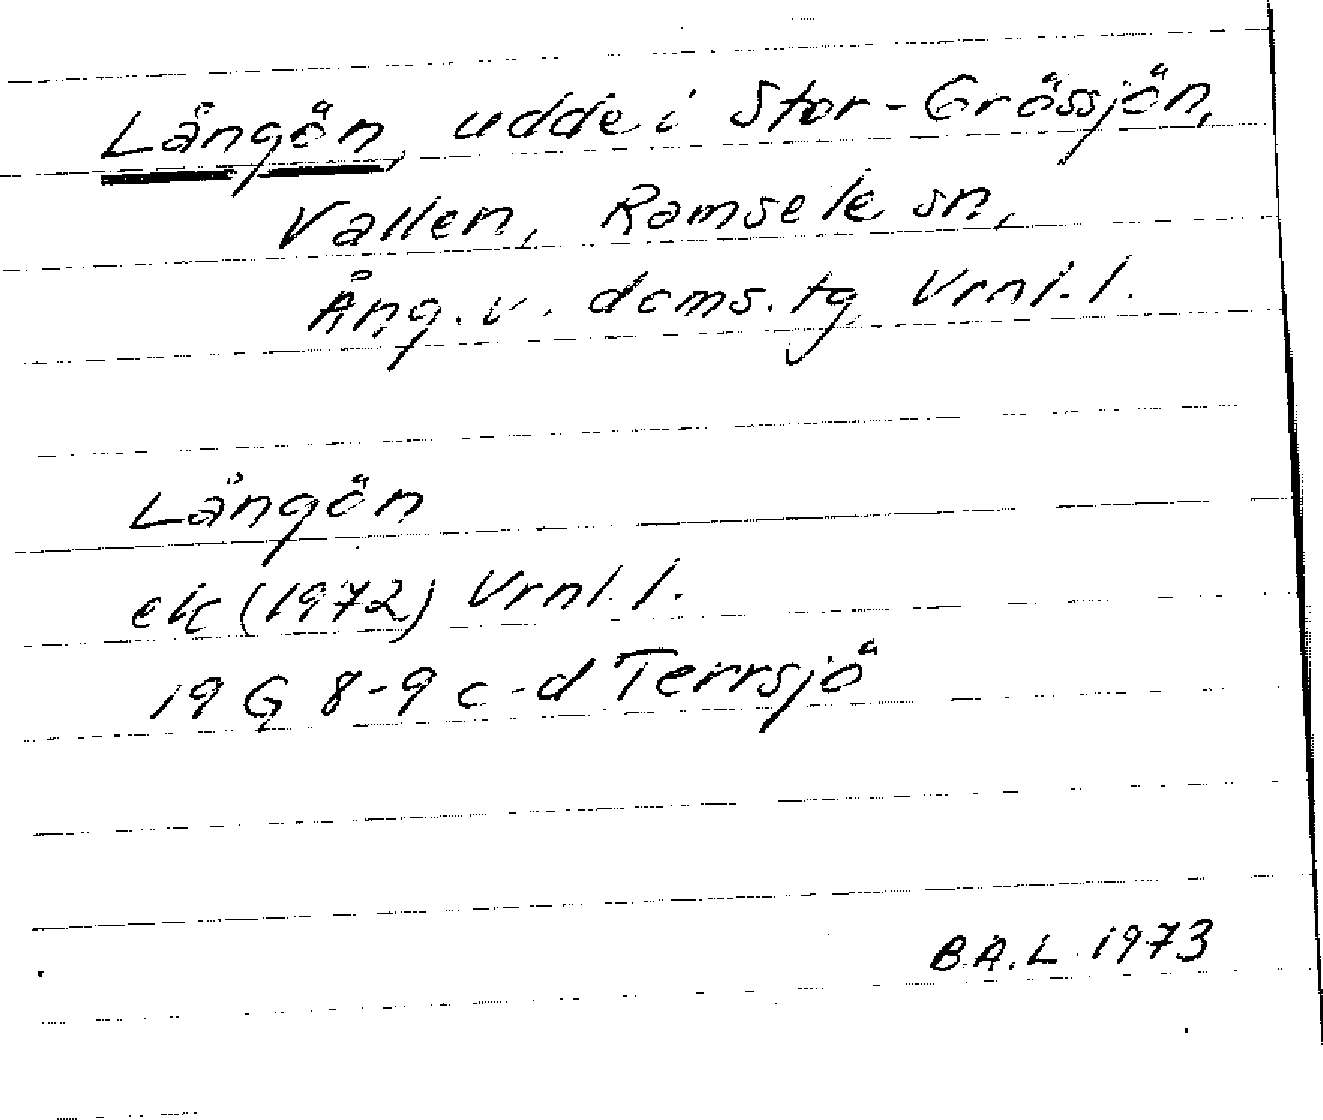 Långön, udde i Stor-Grössjön,
Vallen, Ramsele sn,
Ång. v. doms. tg, Vrnl. l.
Långön
ek (1972) Vrnl. l.
19 G 8-9 c-d Terrsjö
B.A.L 1973